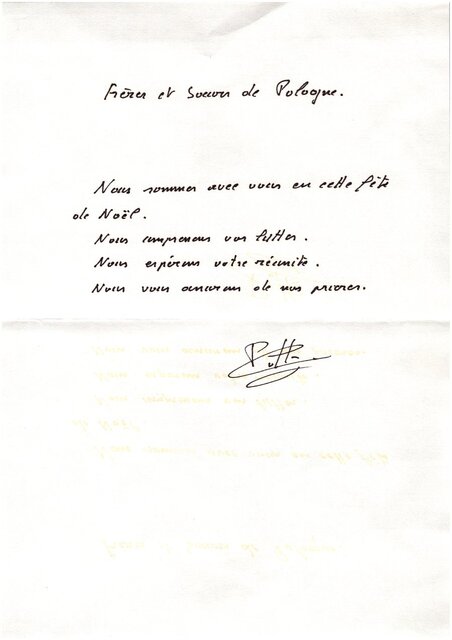 Frères et Soeurs de Pologne.
Nous sommes avec vous en cette fête
de Noël.
Nous comprenons vos luttes.
Nous espérons votre réussite.
Nous vous assurons de nos prières.